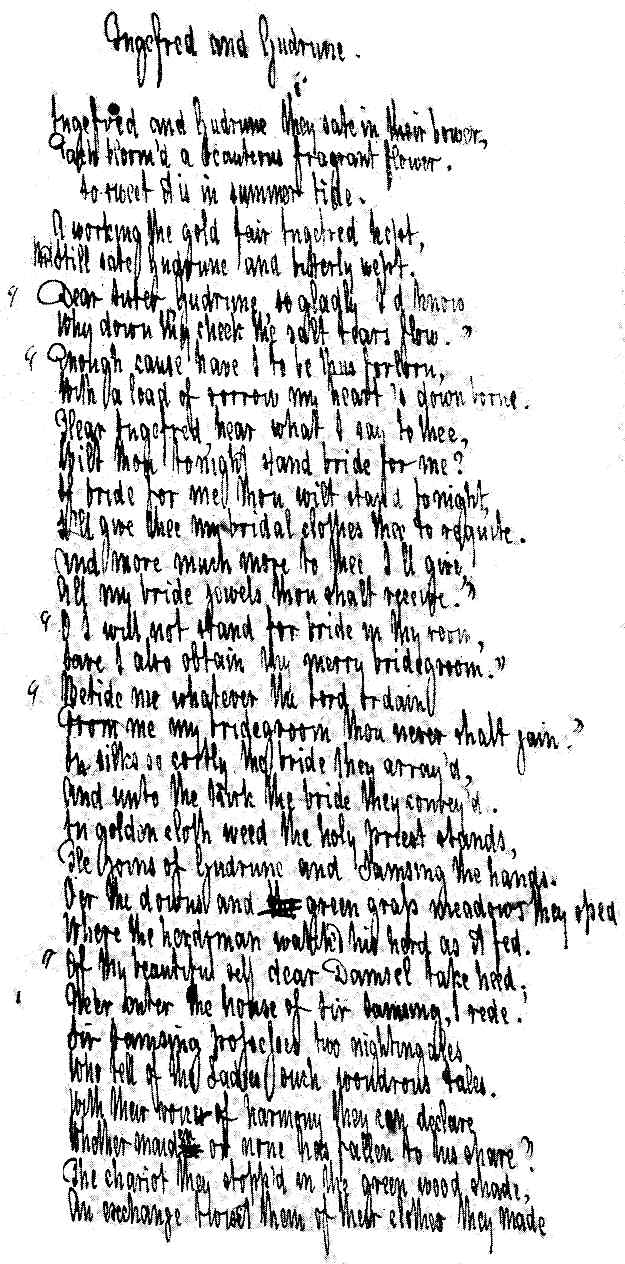 Ingefred and Gudrune.
Ingefred and Gudrune they sate in their bower,
Each bloom'd a beauteous fragrant flower.
So sweet it is in summer tide.
A working the gold fair Ingefred kept,
Still sate Gudrune and bitterly wept.
"Dear sister Gudrune, so gladly I'd know
Why down thy cheek the salt tears flow."
"Enough cause have I to be thus forlorn,
With a load of sorrow my heart is down borne.
Hear Ingefred, hear what I say to thee,
Wilt thou tonight stand bride for me?
If bride for me thou wilt stand tonight,
I'll give thee my bridal clothes thee to requite.
And more much more to thee I'll give,
All my bride jewels thou shalt receive."
"O I will not stand for bride in thy room,
Save I also obtain thy merry bridegroom."
"Betide me whatever the Lord ordain
From me my bridegroom thou never shalt gain."
In silks so costly the bride they array'd,
And unto the kirk the bride they convey'd.
In golden cloth weed the holy priest stands,
He joins of Gudrune and Samsing the hands.
O'er the downs and green grass meadows they sped
Where the herdsman watch'd his herd as it fed.
"Of thy beautiful self dear Damsel take heed,
Ne'er enter the house of Sir Samsing, I rede.
Sir Samsing possesses two nightingales
Who tell of the Ladies such wondrous tales.
With their voices of harmony they can declare
Whether maid or none has fallen to his share"
The chariot they stopp'd in the green wood shade,
An exchange twixt them of their clothes they made